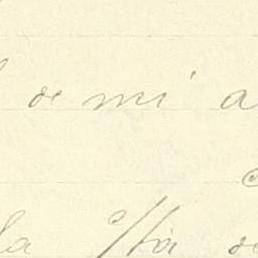 de mi a
la Sta de